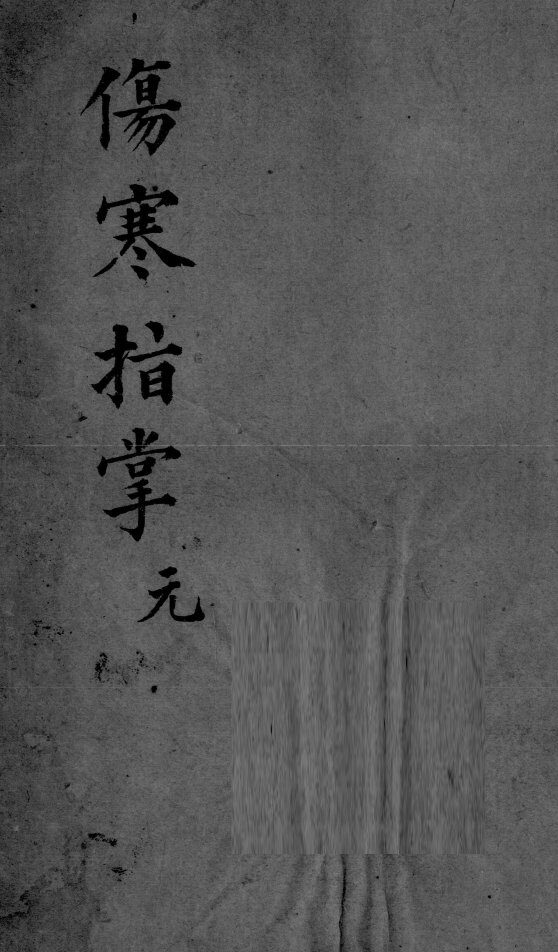 傷寒指掌
元